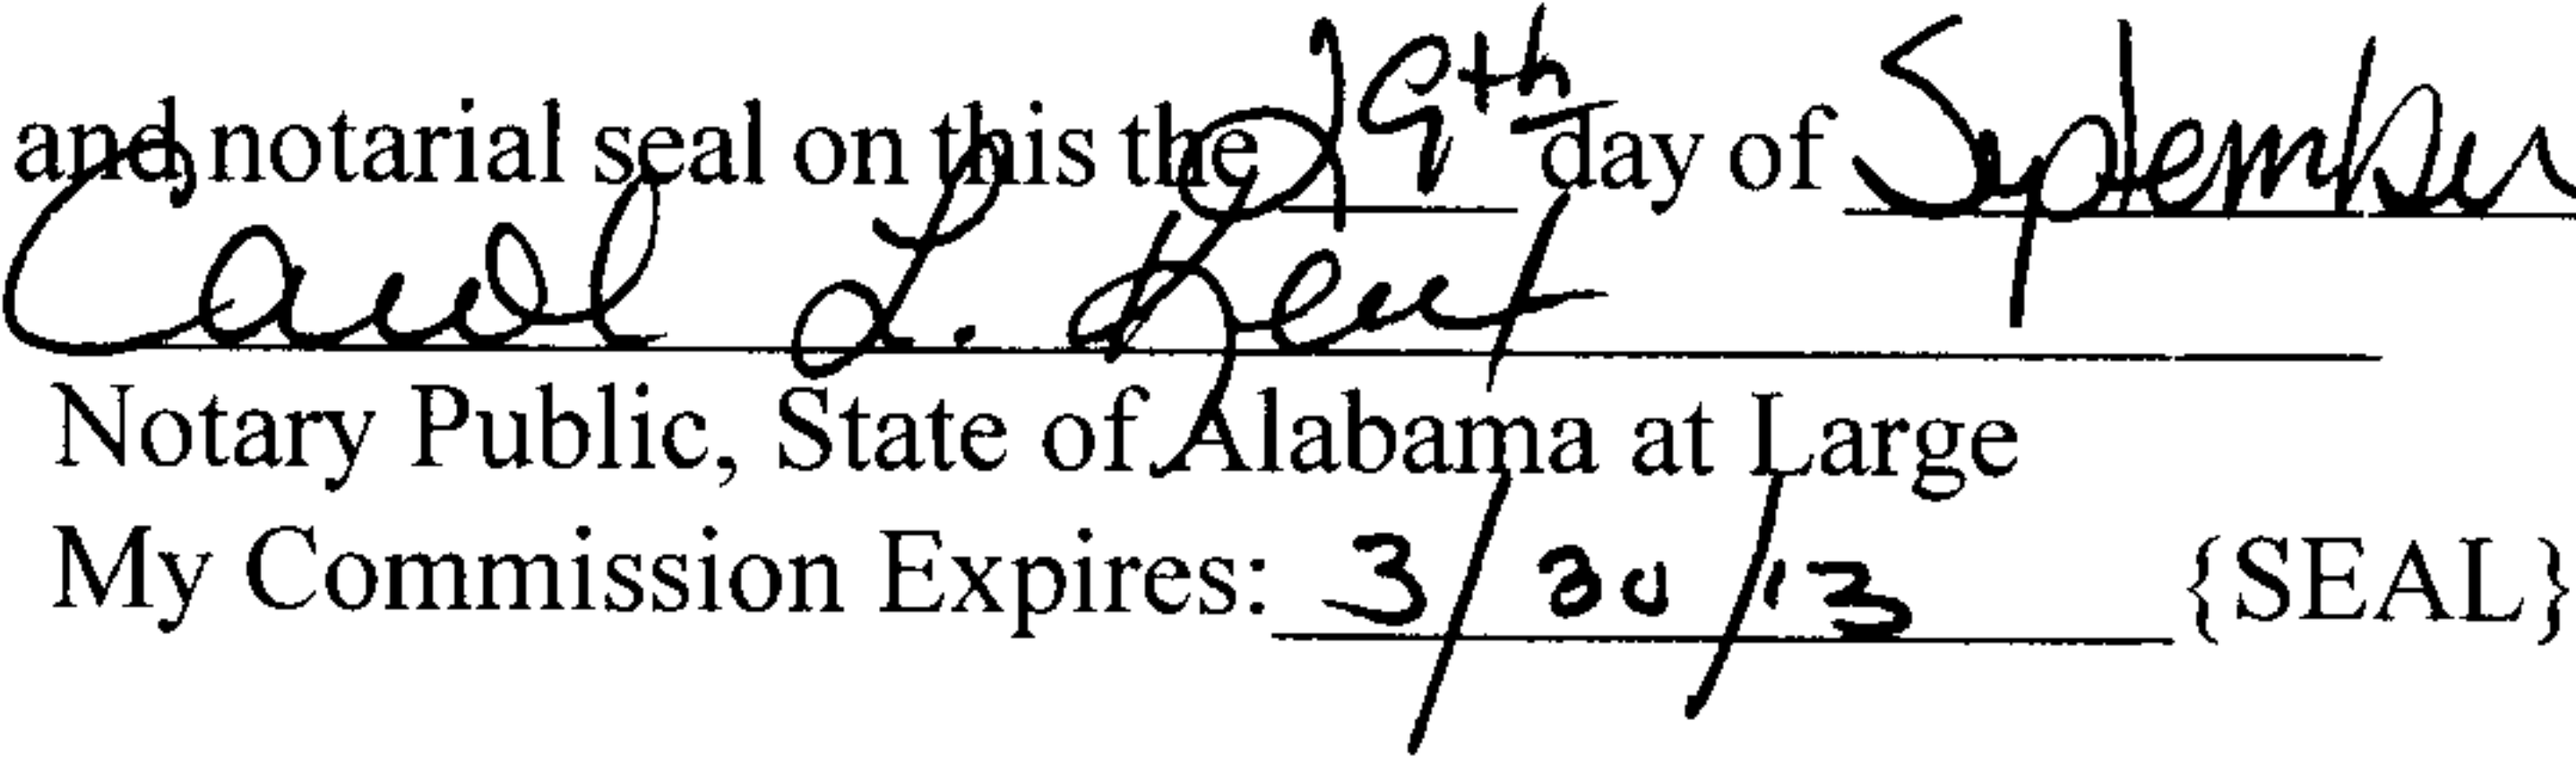 and notarial seal on this the 29th day of September
Carol L. Kent
Notary Public, State of Alabama at Large
My Commission Expires: 3/30/13 {SEAL}